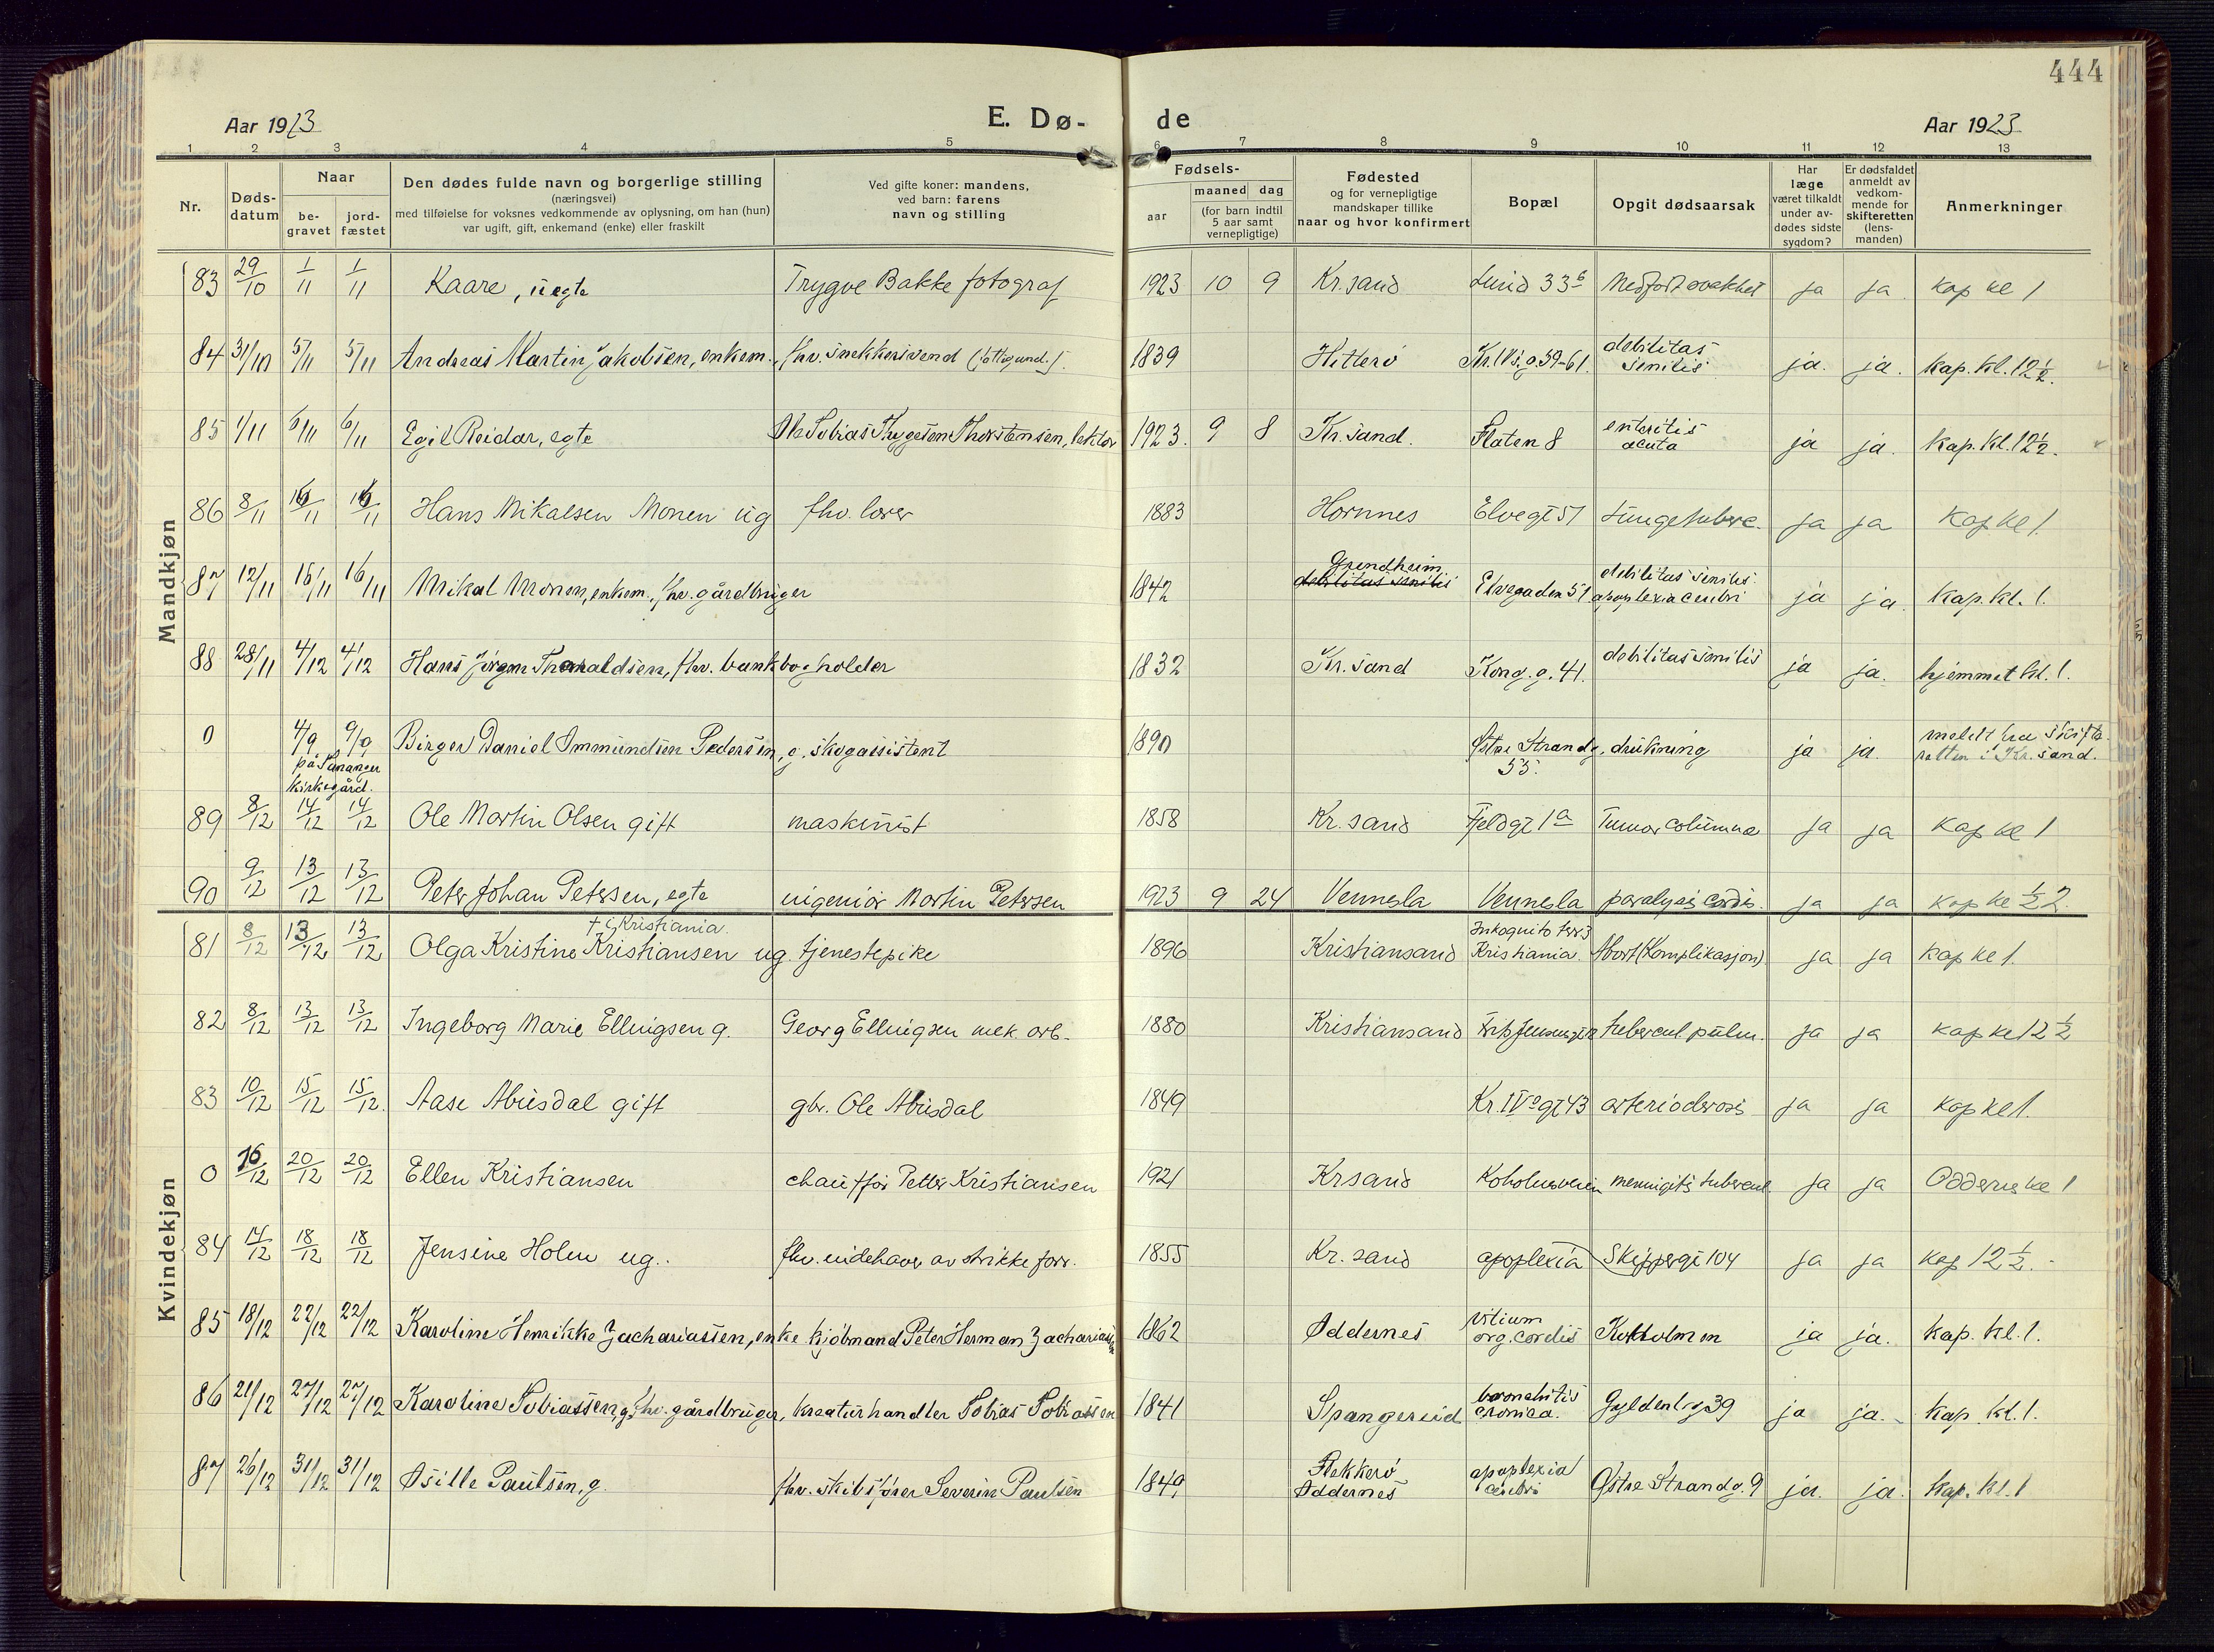 444
Aar 1923
E. Dø-
de
Aar 1923
1 2 3 4 5 6 7 8 9 10 11 12 13
Nr.
Døds-
datum
Naar
be-
gravet
jord-
fæstet
Den dødes fulde navn og borgerlige stilling
(næringsvei)
med tilføielse for voksnes vedkommende av oplysning, om han (hun)
var ugift, gift, enkemand (enke) eller fraskilt
Ved gifte koner: mandens,
ved barn: farens
navn og stilling
Fødsels-
aar
maaned dag
(for barn indtil
5 aar samt
vernepligtige)
Fødested
og for vernepligtige
mandskaper tillike
naar og hvor konfirmert
Bopæl
Opgit dødsaarsak
Har
læge
været tilkaldt
under av-
dødes sidste
sygdom?
Er dødsfaldet
anmeldt av
vedkom-
mende for
skifteretten
(lens-
manden)
Anmerkninger
Mandkjøn
83 29/10 1/11 1/11 Kaare, uegte Trygve Bakke fotograf 1923 10 9 Kr.sand Lund 33 b Medfødt svakhet ja ja kap kl 1
84 31/10 5/11 5/11 Andreas Martin Jakobsen, enkem., fhv. snekkersvend 1839 Hitterö Kr. IVs. g. 59-61. debilitas senilis ja. ja. kap. kl. 12 1/2.
85 1/11 6/11 6/11 Egil Reidar, egte Ole Tobias Thygesen Thorstensen, lektor 1923. 9 8 Kr. sand. Flaten 8 enteritis acuta ja ja. kap. kl. 12 1/2.
86 8/11 16/11 16/11 Hans Mikalsen Monen ug fhv. lærer 1883 Hornnes Elvegt 51 Lungetuberc. ja ja kap kl 1
87 12/11 16/11 16/11 Mikal Monen, enkem., fhv. gårdbruger 1842 Grendheim debilitas senilis Elvegaden 51 debilitas senilis. apoplexia cerebri ja ja. kap. kl. 1.
88 28/11 4/12 4/12 Hans Jörgen Thorvaldsen, fhv. bankbogholder 1832 Kr. sand Kong. g. 41. debilitas senilis ja ja. hjemmet kl. 1.
0 4/9 9/9 på Spananger kirkegård. Birger Daniel Ommundsen Pedersen, g. skogassistent 1890 Østre Strandg. 55. drukning ja ja. meldt fra skifteretten i Kr. sand.
89 8/12 14/12 14/12 Ole Martin Olsen gift maskinist 1858 Kr. sand Fjeldgt 1 a Tumor columnae ja ja kap kl 1
90 9/12 13/12 13/12 Peter Johan Petersen, egte ingeniör Martin Petersen 1923 9 24 Vennesla Vennesla paralysis cordis. ja ja kap kl 1/2 2
Kvindekjøn
81 8/12 13/12 13/12 Olga Kristine Kristiansen ug. tjenestepike † i Kristiania 1896 Kristiansand Inkognito terr 3 Kristiania Abort (Komplikasjon) ja ja kap kl 1.
82 8/12 13/12 13/12 Ingeborg Marie Ellingsen g. Georg Ellingsen mek. arb. 1880 Kristiansand tubercul. pulm. ja ja kap kl 12 1/2
83 10/12 15/12 15/12 Aase Abusdal gift gbr. Ole Abusdal 1849 Kr. IVs gt 43 arteriosclerosis ja ja kap kl 1.
0 16/12 20/12 20/12 Ellen Kristiansen chauffør Petter Kristiansen 1921 Krsand Koholmveien meningitis tubercul. ja ja Oddernes kl 1
84 14/12 18/12 18/12 Jensine Holm ug. fhv. indehaver av strikkeforr. 1855 Kr. sand apoplexia Skippergt 104 ja ja kap 12 1/2.
85 18/12 22/12 22/12 Karoline Henrikke Zachariassen, enke kjöbmand Peter Herman Zachariassen 1862 Oddernes vitium org. cordis Kokholmen ja ja. kap. kl. 1.
86 21/12 27/12 27/12 Karoline Tobiassen, g. fhv. gårdbruger, kreaturhandler Tobias Tobiassen 1841 Spangereid bronchitis cronica. Gyldenl. g 39 ja ja. kap. kl. 1.
87 26/12 31/12 31/12 Osille Paulsen, g. fhv. skibsfører Severin Paulsen 1849 Flekkerö Oddernes apoplexia cerebri Østre Strandg. 9 ja. ja. kap. kl. 1